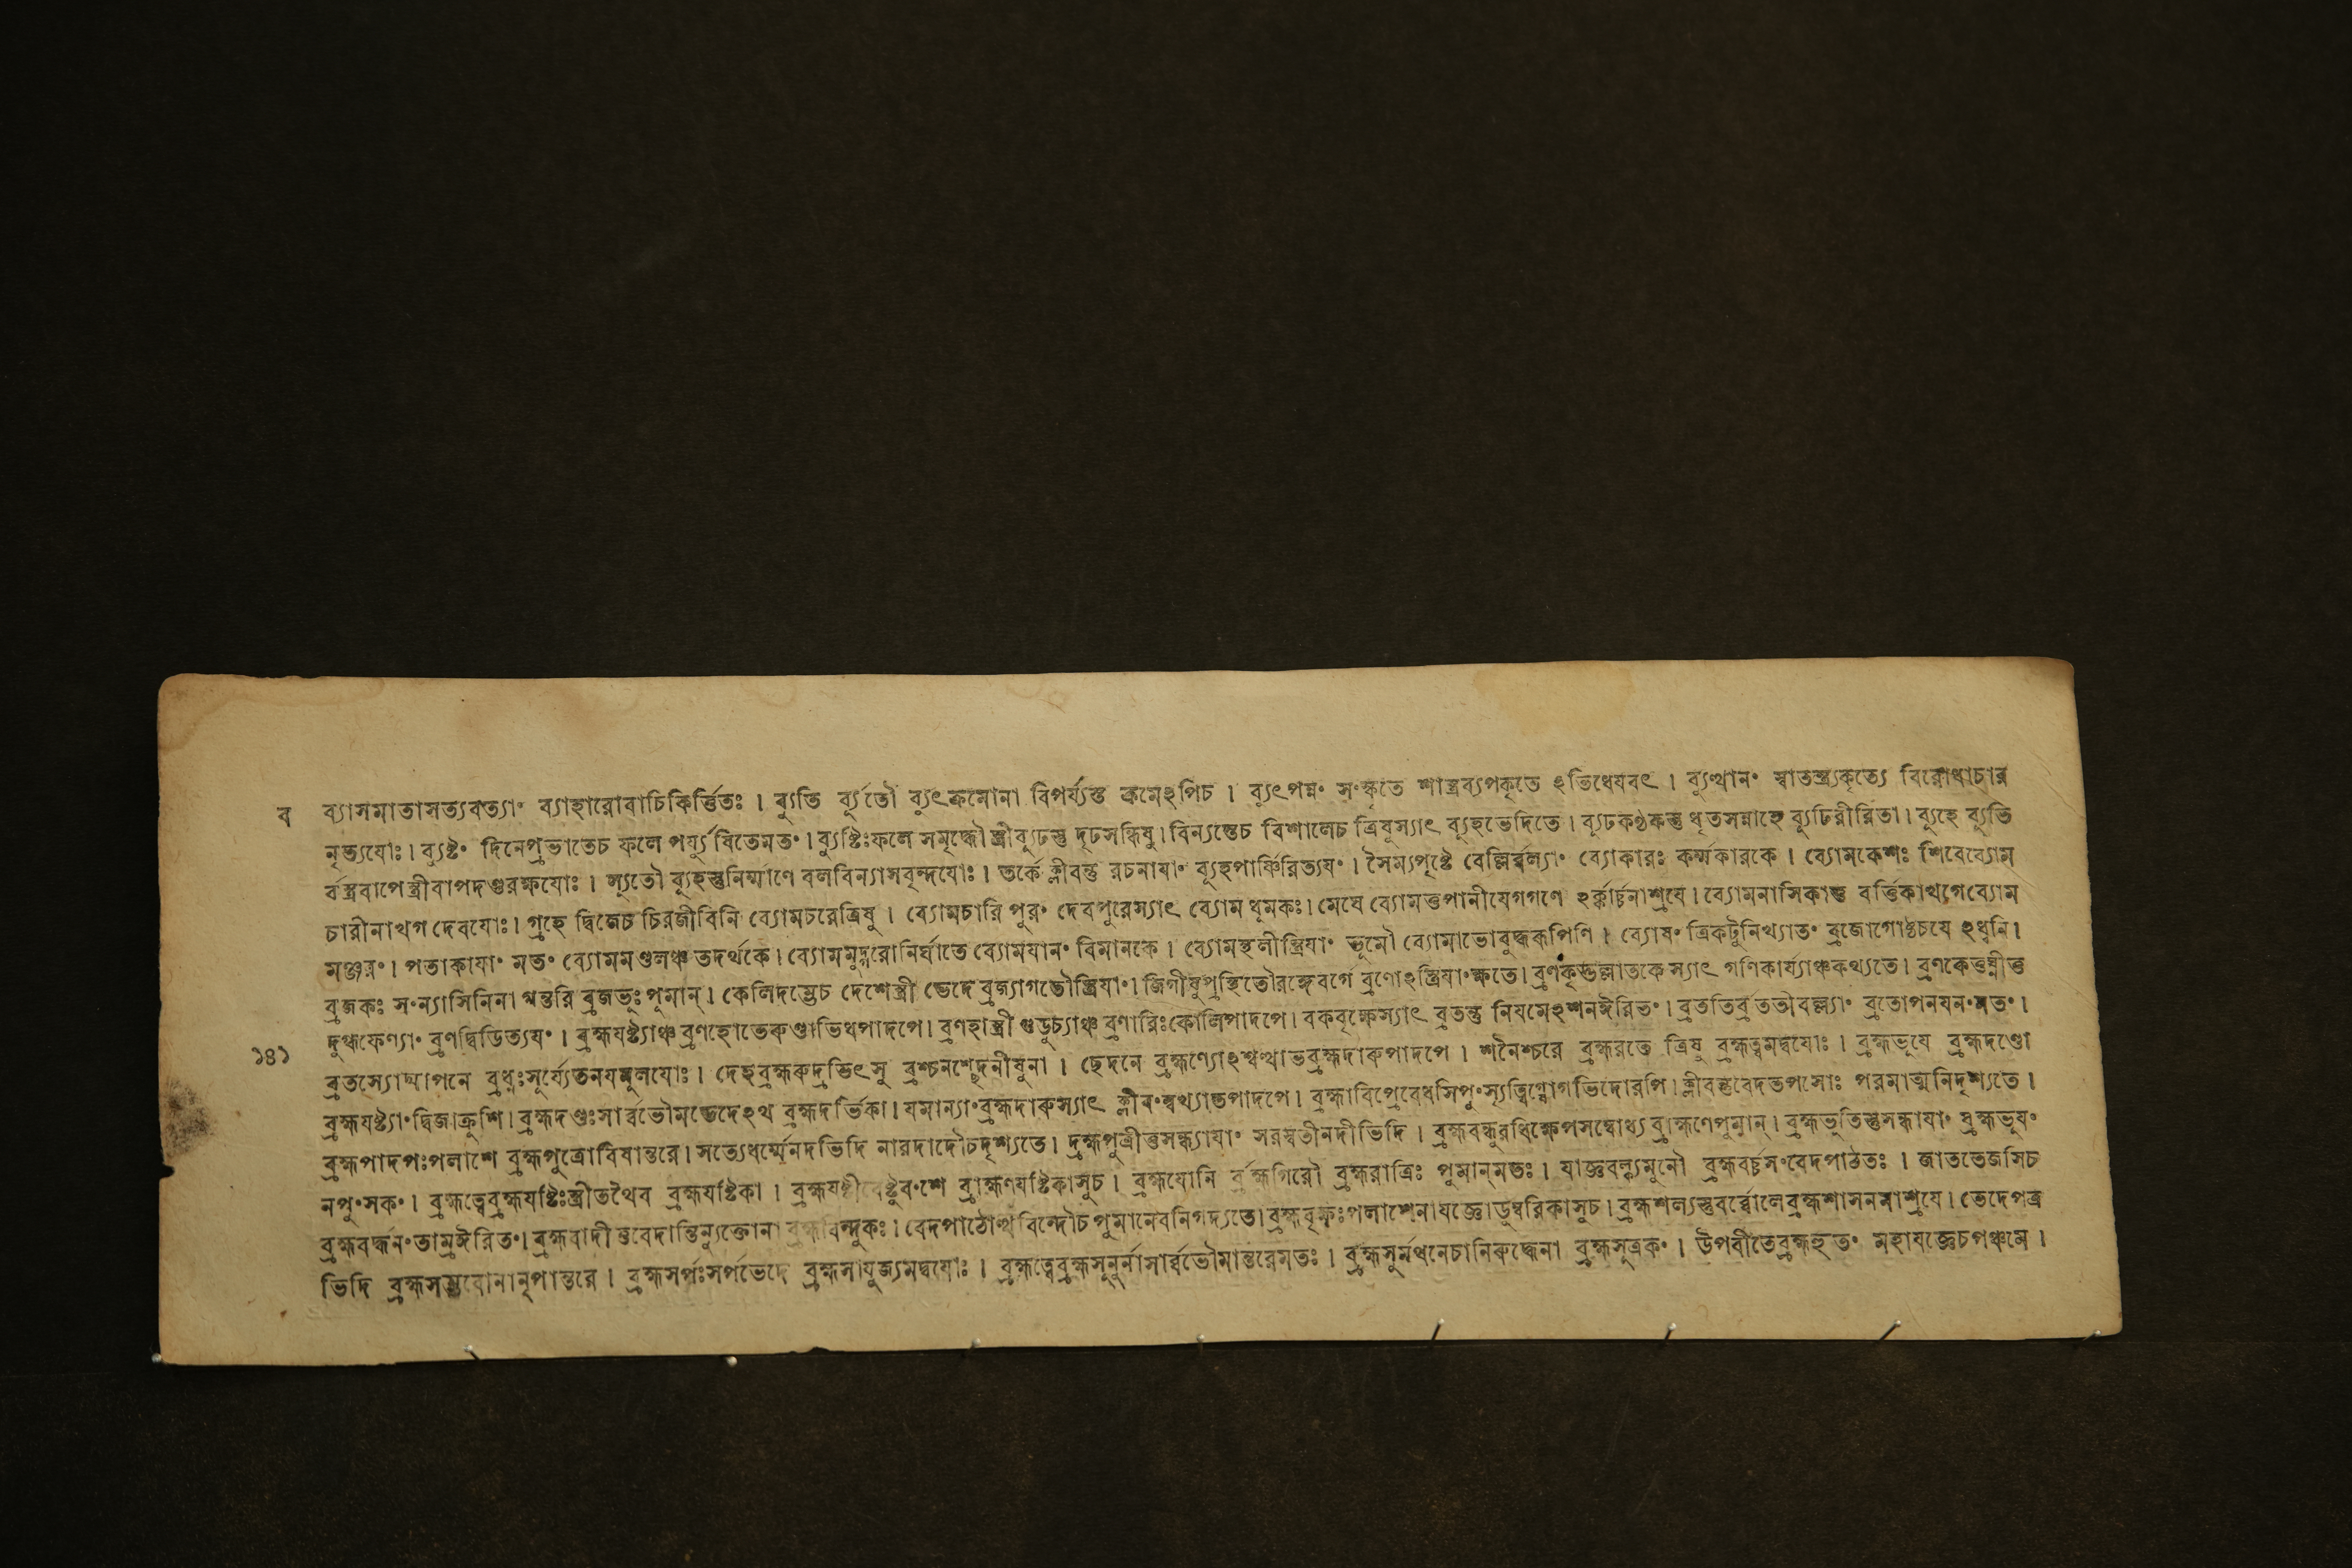 ব ব্যাসমাতাসত্যবত্যা॰ ব্যাহারোবাচিকির্ত্তিতঃ । ব্যুতি র্ব্যূতৌ ব্যুৎক্রমোনা বিপর্য্যস্ত ক্রমেঽপিচ । ব্যুৎপন্ন॰ স॰স্কৃতে শাস্ত্রব্যপকৃতে ঽভিধেযবৎ । ব্যুত্থান॰ স্বাতন্ত্র্যকৃত্যে বিরোধাচার
নৃত্যযোঃ । ব্যুষ্ট॰ দিনেপ্রভাতেচ ফলে পর্য্যুষিতেমত॰ । ব্যুষ্টিঃফলে সমৃদ্ধৌ স্ত্রীব্যুঢস্তু দৃঢসন্ধিষু । বিন্যস্তেচ বিশালেচ ত্রিষুস্যাৎ ব্যূহভেদিতে । ব্যূঢকণ্ঠকস্তু ধৃতসন্নাহে ব্যুঢিরীরিতা । ব্যুহে ব্যুতি
র্বস্ত্রবাপেস্ত্রীবাপদণ্ডরক্ষযোঃ । ল্যুতৌ ব্যুহস্তুনির্ম্মাণে বলবিন্যাসবৃন্দযোঃ । তর্কে ক্লীবন্তু রচনাযা॰ ব্যূহপার্ষ্ণিরিত্যয॰ । সৈন্যপৃষ্টে বেল্লির্ব্বল্যা॰ ব্যোকারঃ কর্ম্মকারকে । ব্যোমকেশঃ শিবেব্যোম
চারীনাখগ দেবযোঃ । গ্রহে দ্বিজেচ চিরজীবিনি ব্যোমচরেত্রিষু । ব্যোমচারি পুর॰ দেবপুরেস্যাৎ ব্যোম ধুমকঃ । মেঘে ব্যোমত্তপানীযেগগণে ঽর্ক্কার্চ্চনাশ্রযে । ব্যোমনাসিকাতু বর্ত্তিকাখগেব্যোম
মঞ্জর॰ । পতাকাযা॰ মত॰ ব্যোমমণ্ডলঞ্চ তদর্থকে । ব্যোমমুদ্গরোনির্ঘাতে ব্যোমযান॰ বিমানকে । ব্যোমস্থলীস্ত্রিযা॰ ভূমৌ ব্যোমাভোবুদ্ধরূপিণি । ব্যোষ॰ ত্রিকটুনিখ্যাত॰ ব্রজোগোষ্ঠচযে ঽধ্বনি ।
ব্রজকঃ স॰ন্যাসিনিনা ধন্তরি ব্রজভুঃপুমান্ । কেলিদম্ভেচ দেশেস্ত্রী ভেদে ব্রজ্যাগতৌস্ত্রিযা॰ । জিগীষুপ্রস্থিতৌরঙ্গেবর্গে ব্রণোঽস্ত্রিযা॰ক্ষতে । ব্রণকৃত্তল্লাতকে স্যাৎ গণিকার্য্যাঞ্চকথ্যতে । ব্রণকেতুঘ্নীতু
দুগ্ধফেণ্যা॰ ব্রণদ্বিডিত্যয॰ । ব্রহ্মযষ্ট্যাঞ্চ ব্রণহোভেরুণ্ডাভিধপাদপে । ব্রণহাস্ত্রী গুডুচ্যাঞ্চ ব্রণারিঃকোলিপাদপে । বকবৃক্ষেস্যাৎ ব্রতন্তু নিযমেঽশনঈরিত॰ । ব্রততির্ব্রততীবল্ল্যা॰ ব্রতোপনযন॰মত॰ ।
১৪১ ব্রতস্যোদ্যাপনে ব্রধ্নঃসূর্য্যেতনযমুলযোঃ । দেহব্রহ্মরুদ্রভিৎসু ব্রশ্চনশ্ছেদনীষুনা । ছেদনে ব্রহ্মণ্যোঽশ্বত্থাভব্রহ্মদারুপাদপে । শনৈশ্চরে ব্রহ্মরতে ত্রিষু ব্রহ্মত্বমদ্বযোঃ । ব্রহ্মভূযে ব্রহ্মদণ্ডো
ব্রহ্মযষ্ট্যা॰দ্বিজাক্রুশি । ব্রহ্মদণ্ডঃসার্ব্বভৌমভেদেঽথ ব্রহ্মদর্ভিকা । যমান্যা॰ব্রহ্মদারুস্যাৎ ক্লীব॰শ্বত্থাভপাদপে । ব্রহ্মাবিপ্রেবেধসিপু॰স্যৃত্বিগ্যোগভিদোরপি । ক্লীবন্তুবেদতপসোঃ পরমাত্মনিদৃশ্যতে ।
ব্রহ্মপাদপঃপলাশে ব্রহ্মপুত্রোবিষান্তরে । সত্যেধর্ম্মেনদভিদি নারদাদৌচদৃশ্যতে । দ্রহ্মপুত্রীতুসন্ধ্যাযা॰ সরস্বতীনদীভিদি । ব্রহ্মবন্ধুরধিক্ষেপসম্বোধ্য ব্রাহ্মণেপুমান্ । ব্রহ্মভুতিস্তুসন্ধাযা॰ ব্রহ্মভূয॰
নপু॰সক॰ । ব্রহ্মত্বেব্রহ্মযষ্টিঃস্ত্রীতথৈব ব্রহ্মযষ্টিকা । ব্রহ্মব॰শে ব্রাহ্মণযষ্টিকাসুচ । ব্রহ্মযোনি র্ব্রহ্মগিরৌ ব্রহ্মরাত্রিঃ পুমান্মতঃ । যাজ্ঞবল্ক্যমুনৌ ব্রহ্মবর্চ্চস॰বেদপাঠতঃ । জাততেজসিচ
ব্রহ্মবর্দ্ধন॰তাম্রঈরিত॰ । ব্রহ্মবাদী তুবেদান্তিন্যুক্তোনা ব্রহ্মবিন্দুকঃ । বেদপাঠোত্থ বিন্দৌচ পুমানেবনিগদ্যতে । ব্রহ্মবৃক্ষঃপলাশেনাযজ্ঞোডুম্বরিকাসুচ । ব্রহ্মশল্যস্তুবর্ব্বোলেব্রহ্মশাসননাশ্রযে । ভেদেপত্র
ভিদি ব্রহ্মসম্ভবোনানৃপান্তরে । ব্রহ্মসর্পঃসর্পভেদে ব্রহ্মসাযুজ্যমদ্বযোঃ । ব্রহ্মত্বেব্রহ্মসূনুর্নাসার্ব্বভৌমান্তরেমতঃ । ব্রহ্মসূর্মথনেচানিরুদ্ধেনা ব্রহ্মসূত্রক॰ । উপবীতেব্রহ্মহুত॰ মহাযজ্ঞেচপঞ্চমে ।